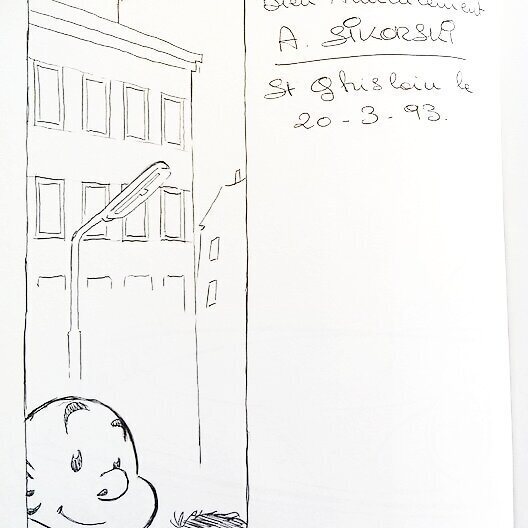 Bien Amicalement
A. SIKORSKI
St Ghislain le
20-3-93.